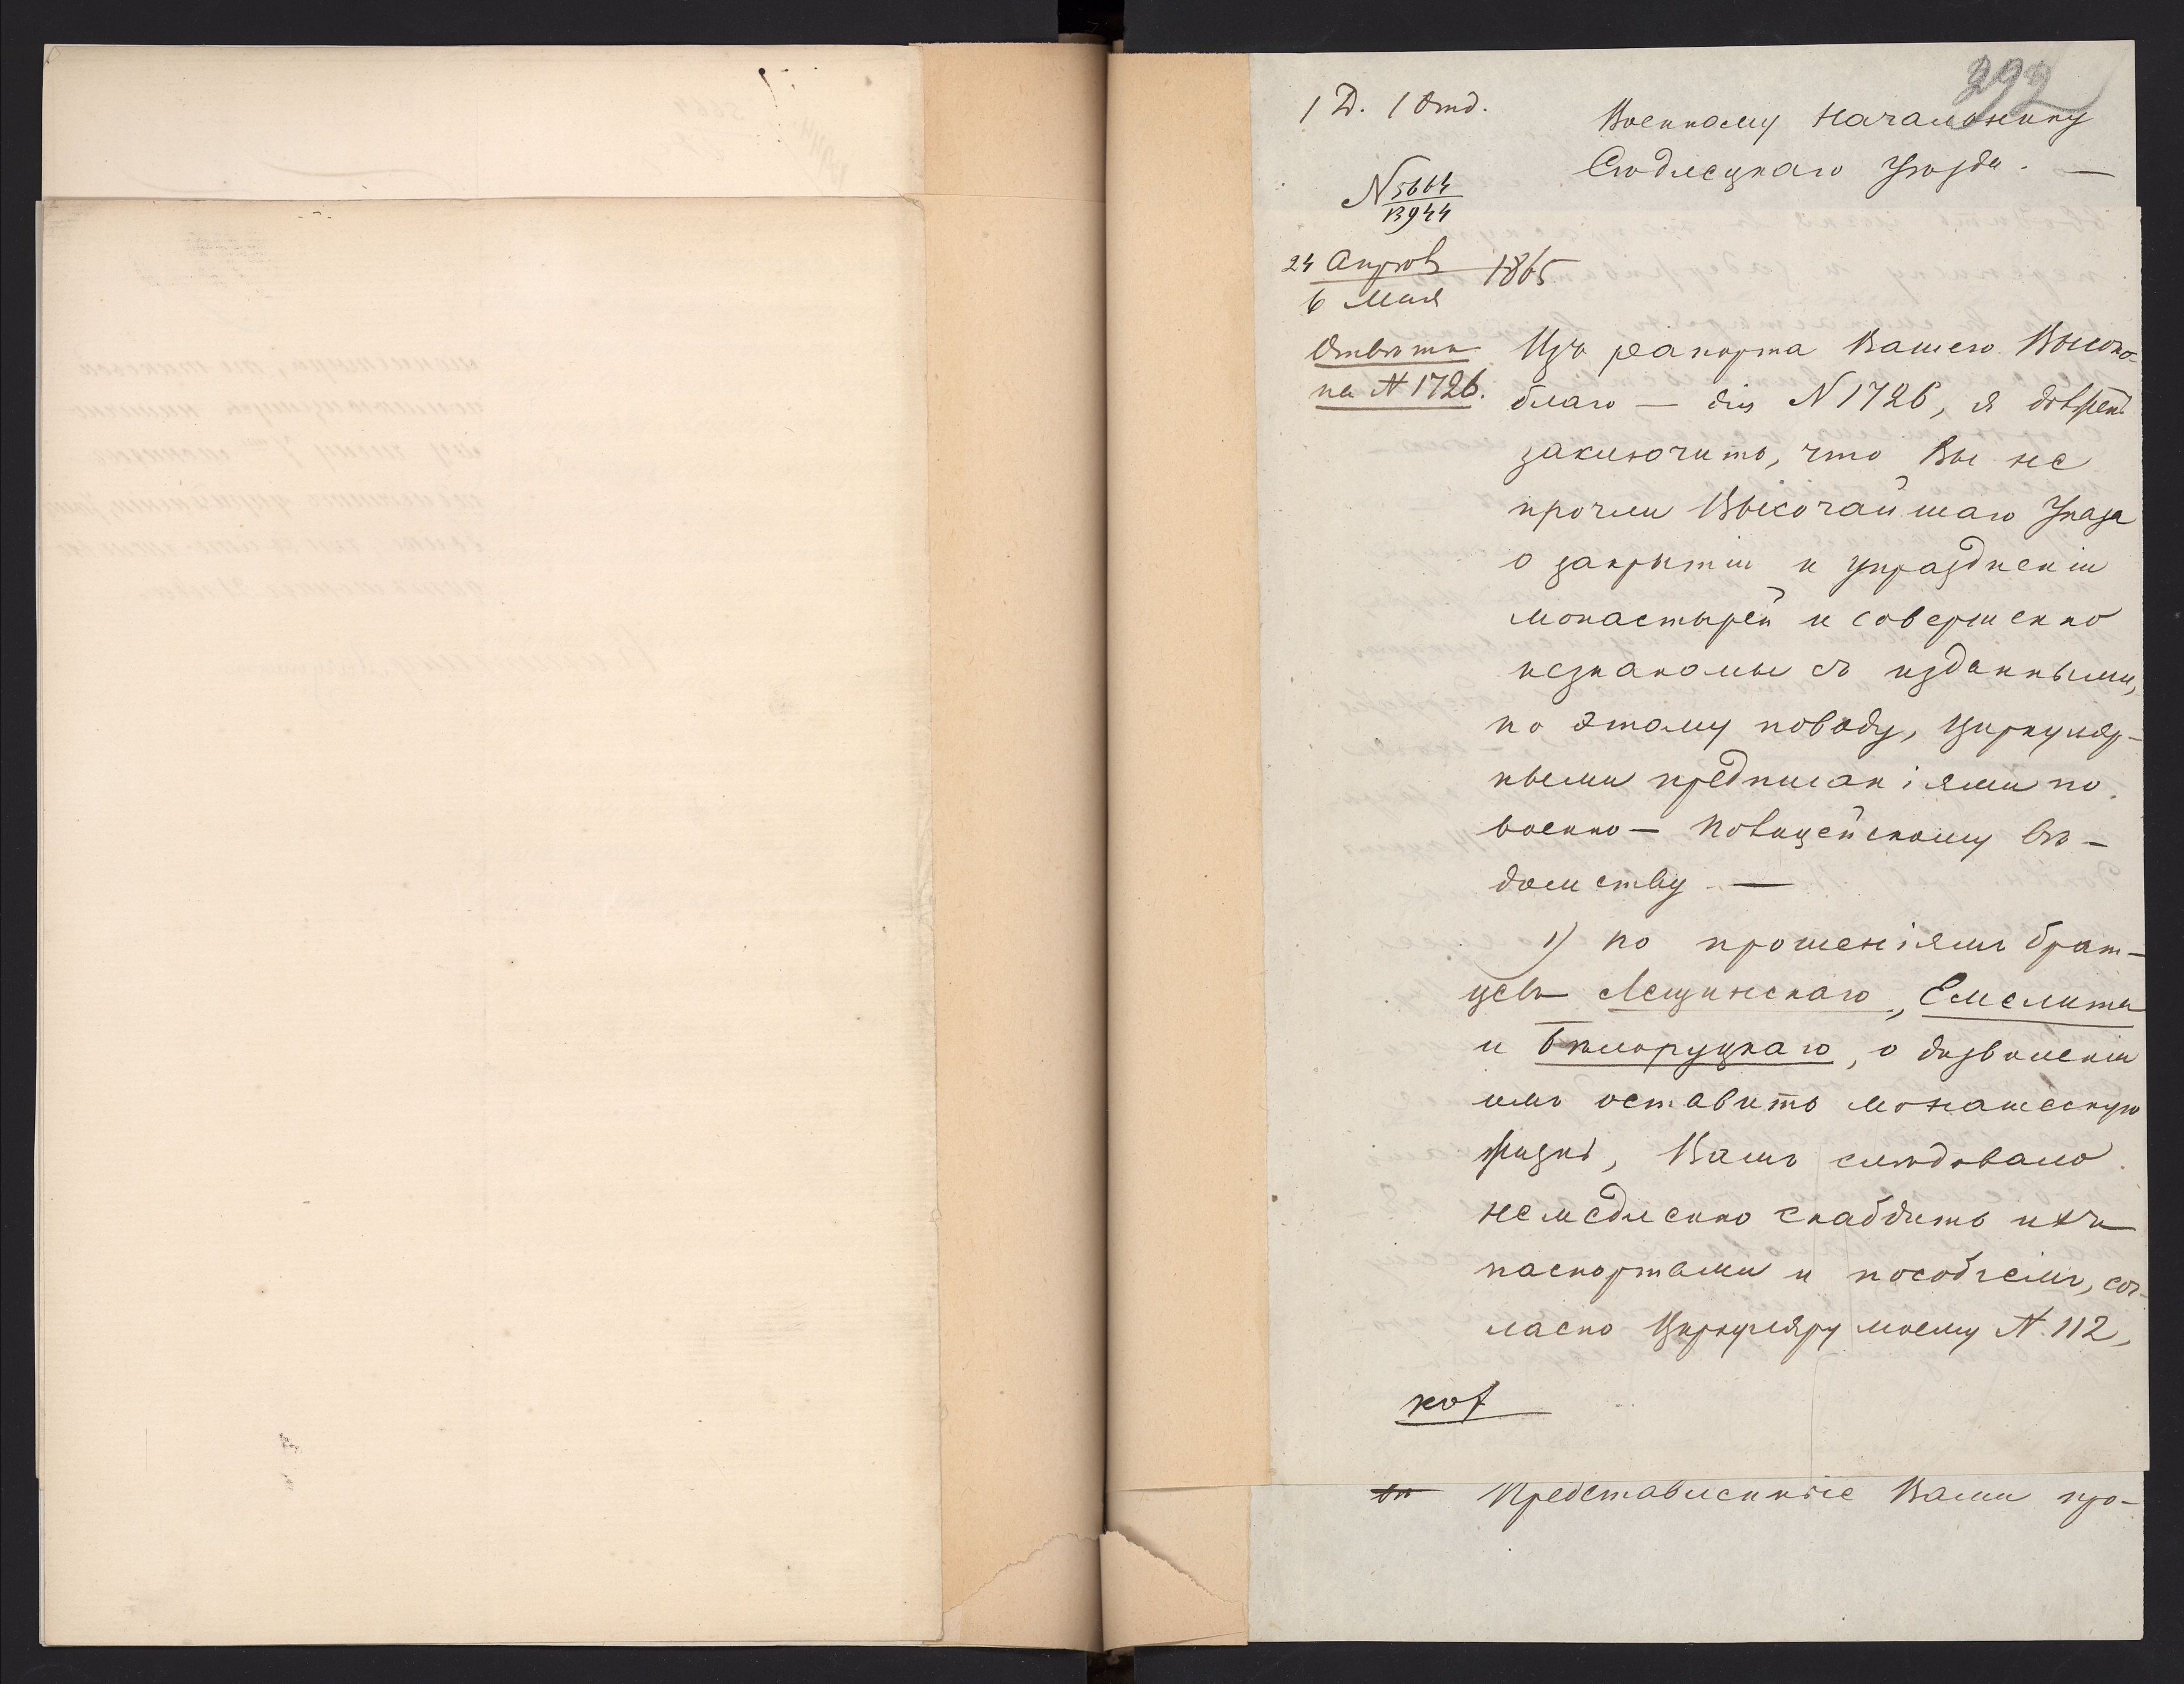 392
1 Д. 1 Отд.
Военному Начальнику
Сѣдлецкаго Уѣзда. —
N 5664
13944
24 Апрѣля
6 Мая
1865
Отвѣтъ
на N 1726.
Изъ рапорта Вашего Высоко-
благо — дія N 1726, я долженъ
заключить, что Вы не
прочли Высочайшаго Указа
о закрытіи и упраздненіи
монастырей и совершенно
незнакомы съ изданными,
по этому поводу, циркуляр-
ными предписаніями по
военно — полицейскому вѣ-
домству —
1) по прошеніямъ брат-
цевъ Лещинскаго, Емелита
и Бѣлоруцкаго, о дозволеніи
имъ оставить монашескую
жизнь, Вамъ слѣдовало
немедленно снабдить ихъ
паспортами и пособіемъ, сог-
ласно Циркуляру моему N. 112,
Представленные Вами про-